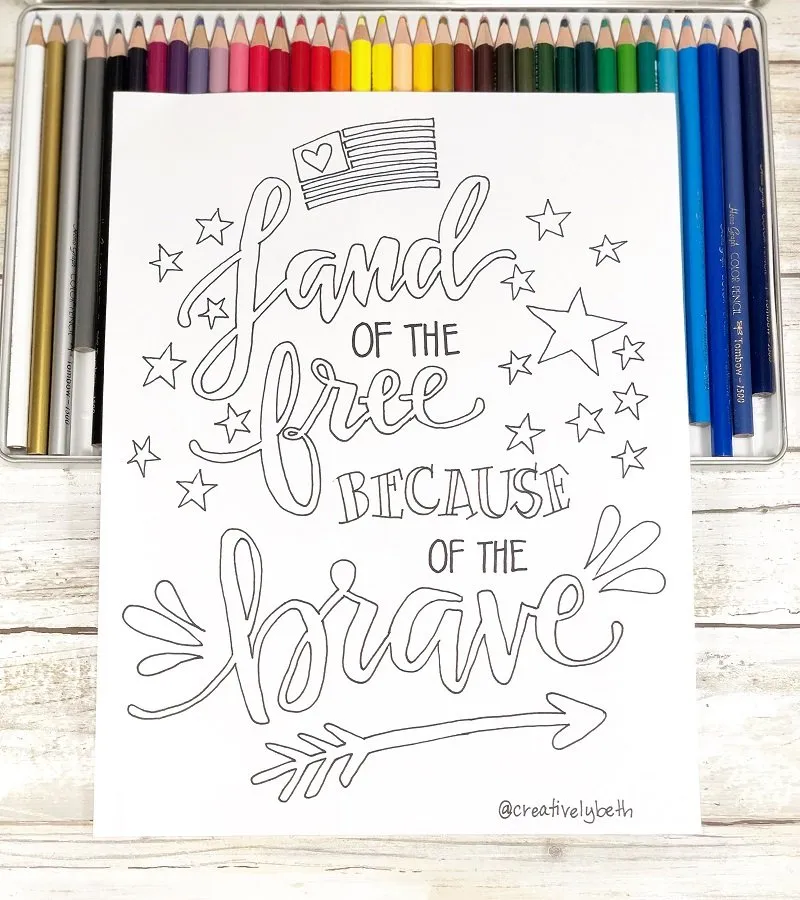 Land
OF THE
free
BECAUSE
OF THE
brave
@creativelybeth
COLOR PENCIL Tombow-1500
Tombow-1500